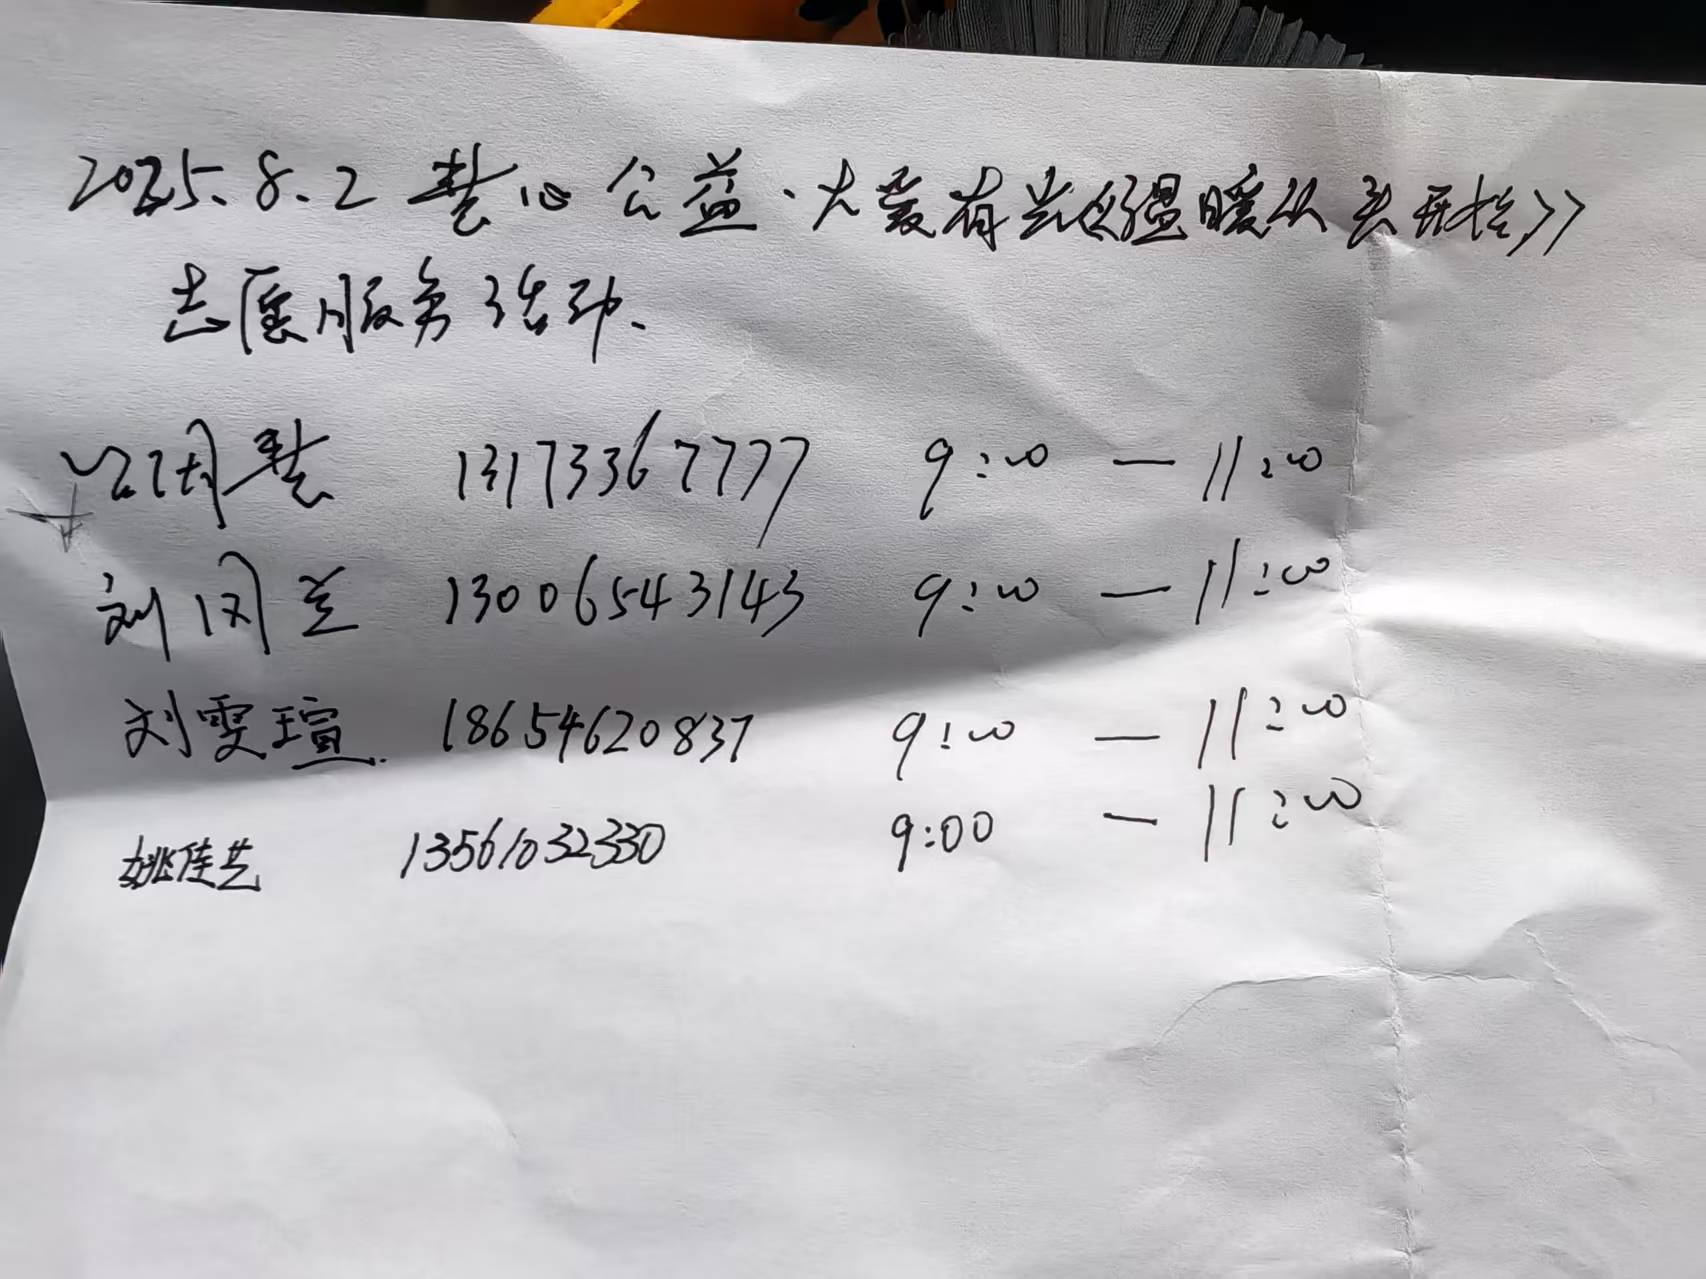 2025.8.2 慧心公益·大爱有光《温暖从头开始》
志愿服务活动.
慧 13173367777 9:00 — 11:00
刘风兰 13006543143 9:00 — 11:00
刘雯瑄. 18654620837 9:00 — 11:00
姚佳艺 13561032330 9:00 — 11:00